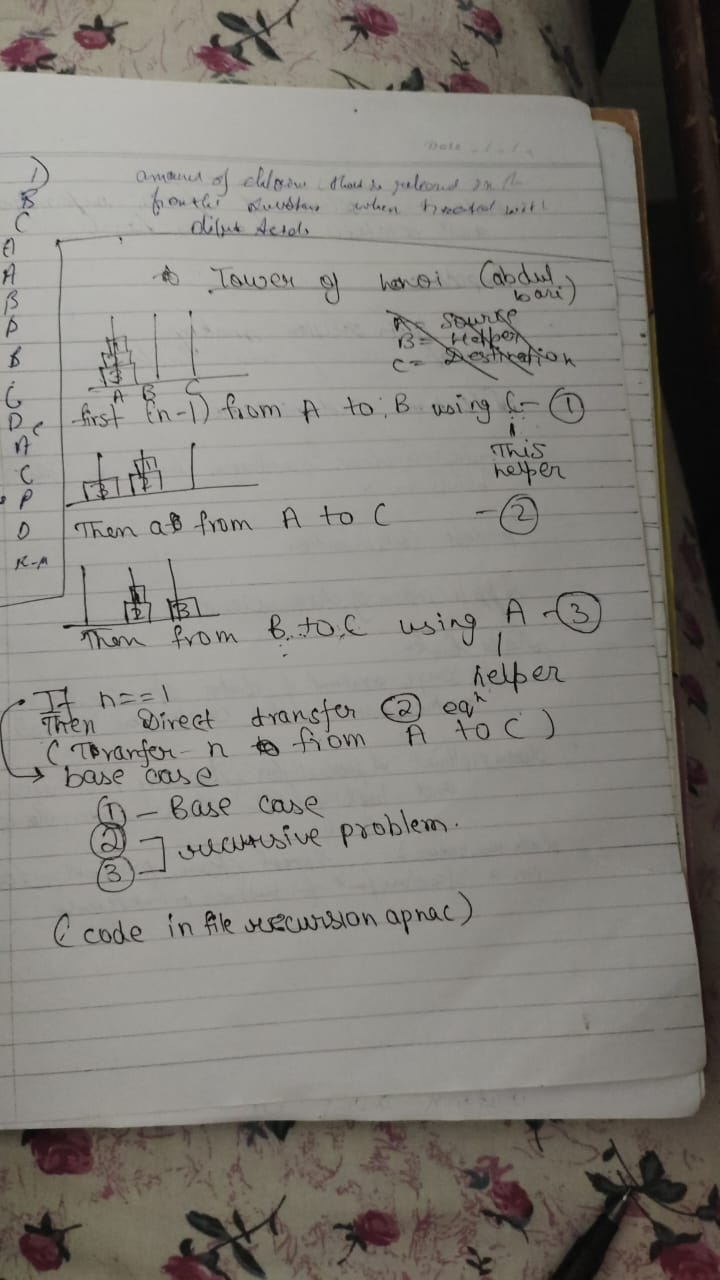 Date
1)
amount of chlorine that is released in the
from the when treated with
dilute Acids
B
C
A
A
B
D
B
C
D C
A
C
P
D
K-A
Tower of hanoi (abdul bari)
A = Sourse
B = Helper
C = Destination
1
2
3
A B C
first (n-1) from A to B using C - ①
This
helper
3
Then from A to C - ②
1
2
3
Then from B to C using A - ③
helper
If n==1
Then Direct transfer ② eqⁿ
(Tranfer n from A to C)
base case
① - Base case
②
③ recursive problem.
(code in file recursion apnac)